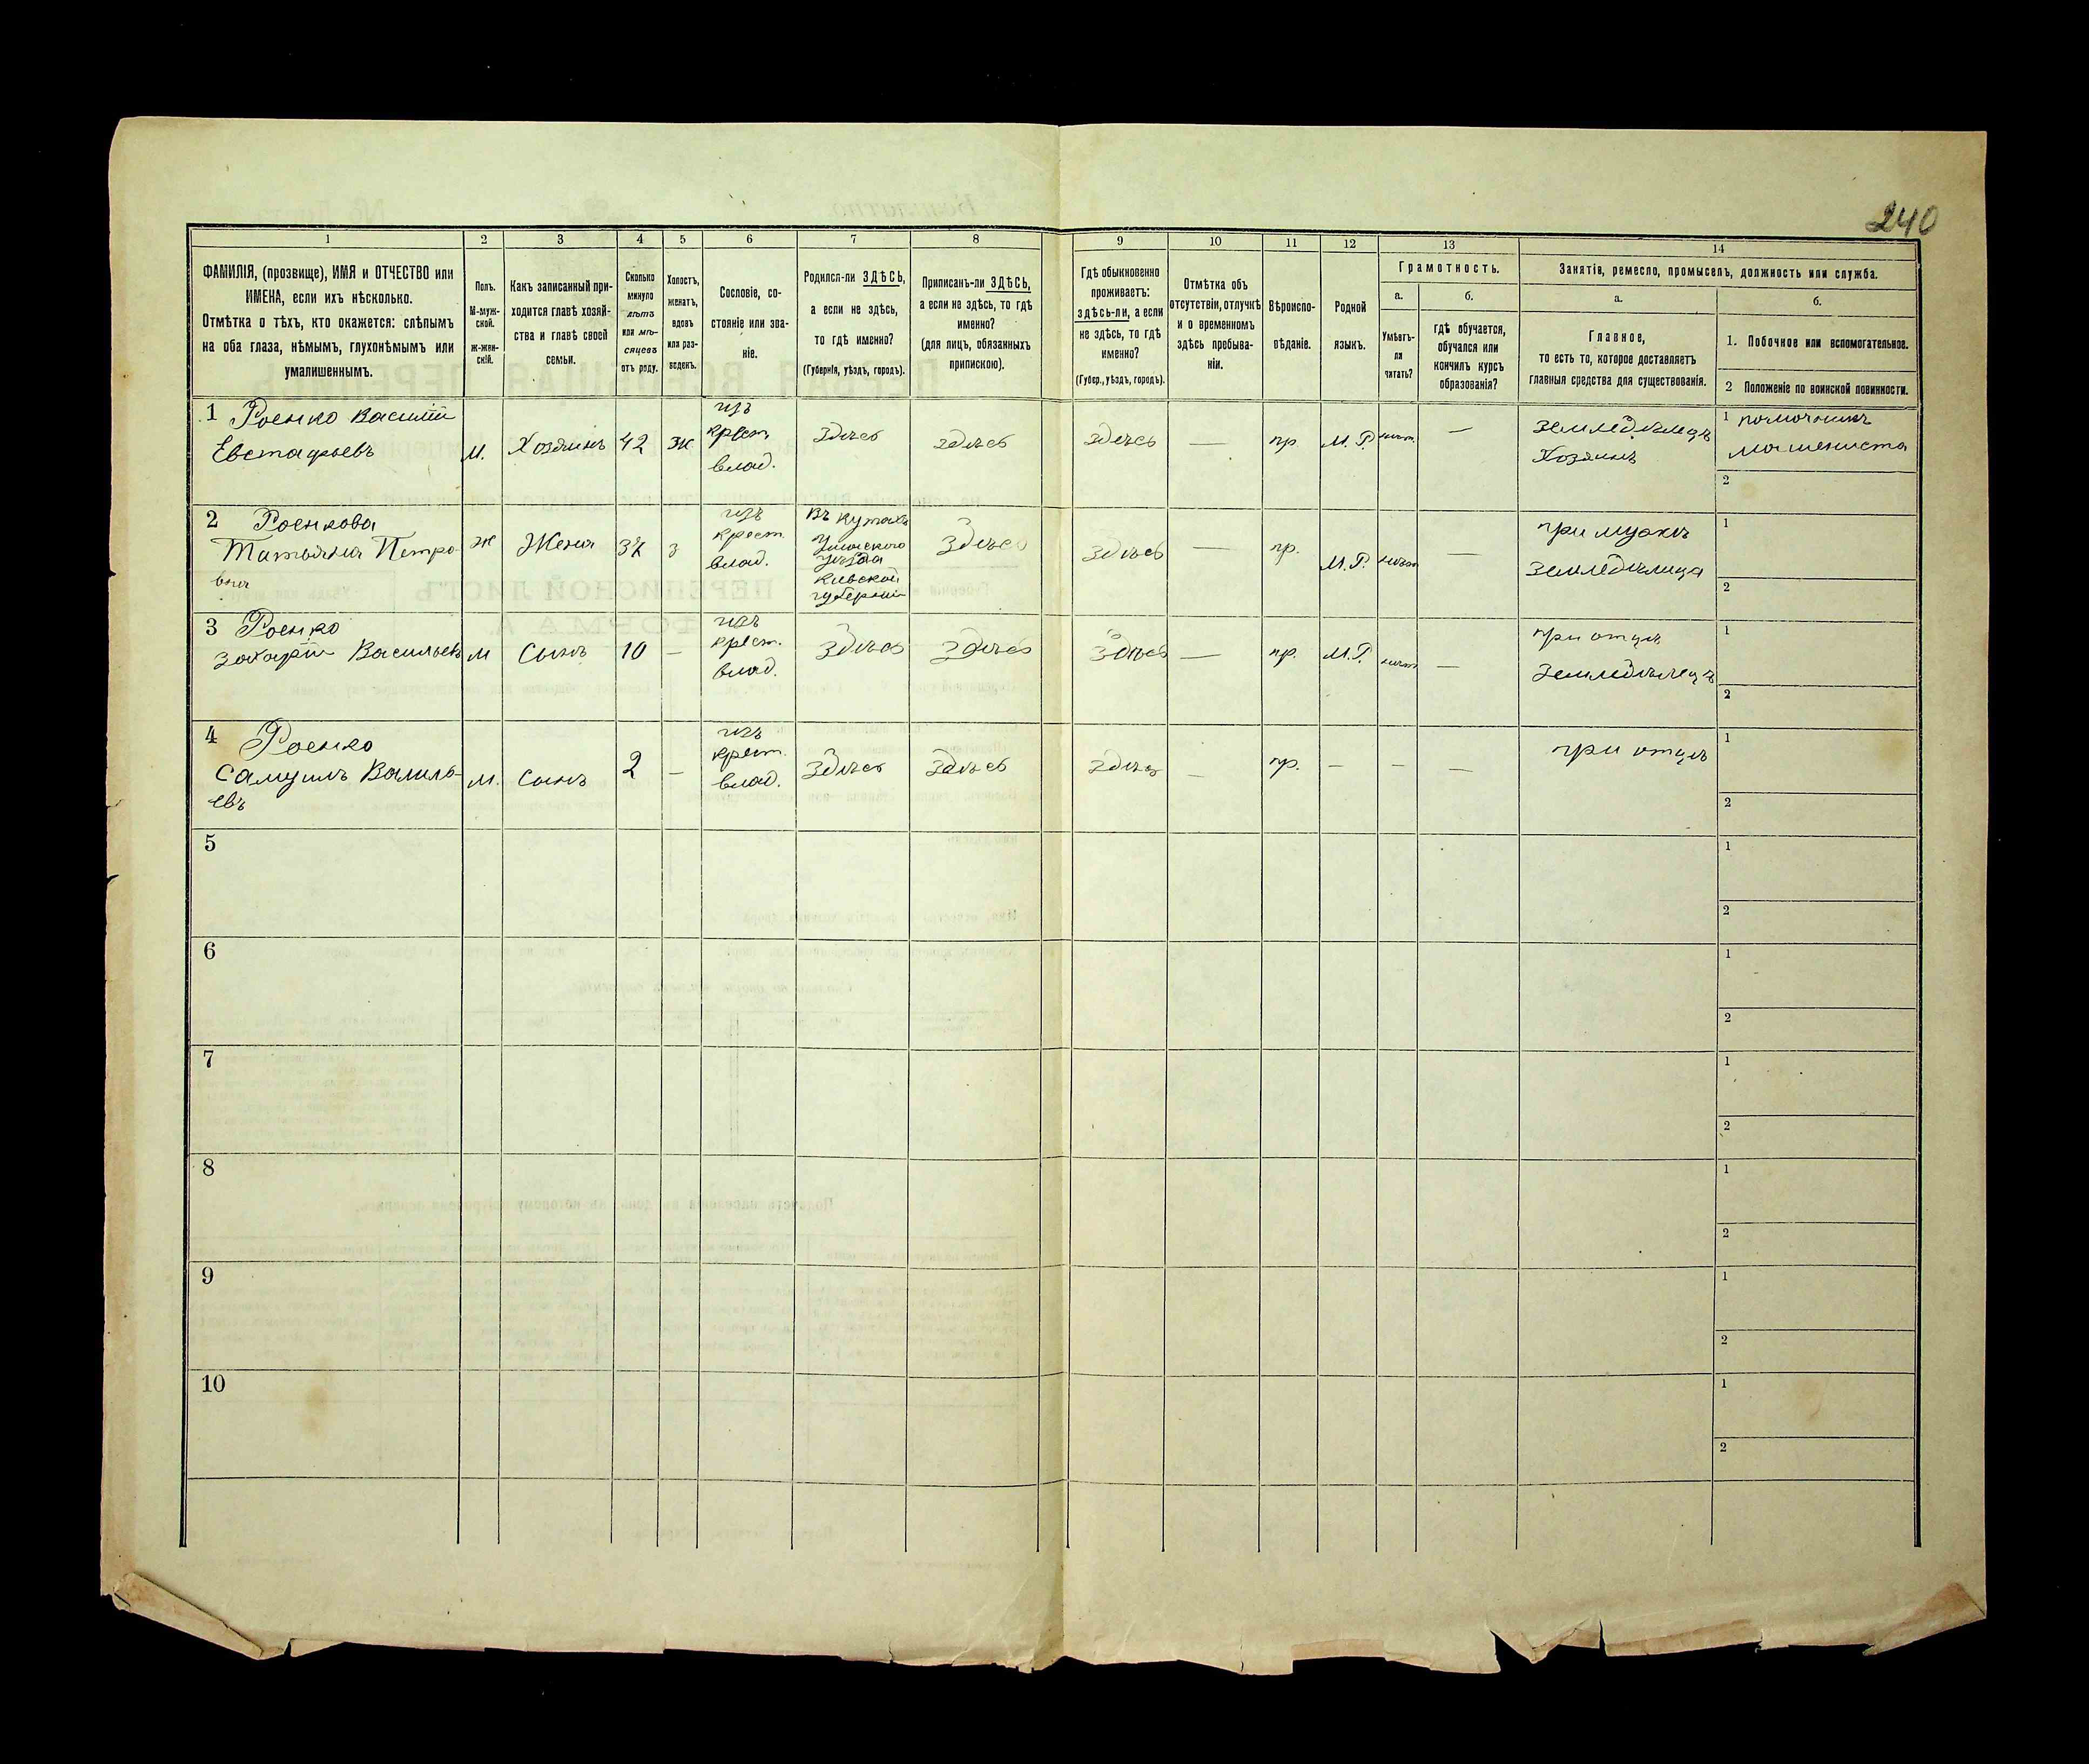 240
1 2 3 4 5 6 7 8 9 10 11 12 13 14
ФАМИЛІЯ, (прозвище), ИМЯ и ОТЧЕСТВО или
ИМЕНА, если ихъ нѣсколько.
Отмѣтка о тѣхъ, кто окажется: слѣпымъ
на оба глаза, нѣмымъ, глухонѣмымъ или
умалишеннымъ.
Полъ.
М-муж-
ской.
Ж-жен-
скій.
Какъ записанный при-
ходится главѣ хозяй-
ства и главѣ своей
семьи.
Сколько
минуло
лѣтъ
или мѣ-
сяцевъ
отъ роду.
Холостъ,
женатъ,
вдовъ
или раз-
веденъ.
Сословіе, со-
стояніе или зва-
ніе.
Родился-ли ЗДѢСЬ,
а если не здѣсь,
то гдѣ именно?
(Губернія, уѣздъ, городъ).
Приписанъ-ли ЗДѢСЬ,
а если не здѣсь, то гдѣ
именно?
(для лицъ, обязанныхъ
припискою).
Гдѣ обыкновенно
проживаетъ:
здѣсь-ли, а если
не здѣсь, то гдѣ
именно?
(Губер., уѣздъ, городъ).
Отмѣтка объ
отсутствіи, отлучкѣ
и о временномъ
здѣсь пребыва-
ніи.
Вѣроиспо-
вѣданіе.
Родной
языкъ.
Грамотность.
а.
Умѣетъ-
ли
читать?
б.
гдѣ обучается,
обучался или
кончилъ курсъ
образованія?
Занятія, ремесло, промыселъ, должность или служба.
а.
Главное,
то есть то, которое доставляетъ
главныя средства для существованія.
б.
1. Побочное или вспомогательное.
2 Положеніе по воинской повинности.
1 Роенко Василій
Евстафьевъ
М.
Хозяинъ
42
Ж
изъ
крест.
влад.
здѣсь
здѣсь
здѣсь
—
пр.
М. Р.
—
земледѣлецъ
Хозяинъ
1 помочникъ
машениста
2
2 Роенкова
Татьяна Петро-
вна
Ж
Жена
з
изъ
крест.
влад.
Въ Кутахъ
Уманского
Уѣзда
Кивской
губерніи
Здѣсь
здѣсь
—
пр.
М. Р.
—
при мужѣ
земледѣлица
1
2
3 Роенко
Захарій Васильевъ
М
Сынъ
10
—
изъ
крест.
влад.
Здѣсь
здѣсь
здѣсь
—
пр.
М. Р.
—
при отцѣ
земледѣлецъ
1
2
4 Роенко
Самуилъ Василь-
евъ
М.
Сынъ
2
—
изъ
крест.
влад.
здѣсь
здѣсь
здѣсь
—
пр.
—
—
—
при отцѣ
1
2
5
1
2
6
1
2
7
1
2
8
1
2
9
1
2
10
1
2